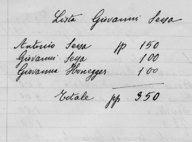 Lista Giovanni Sessa
Antonio Sessa pp 150
Giovanni Sessa 100
Giovanna Honegger 100
Totale pp 350